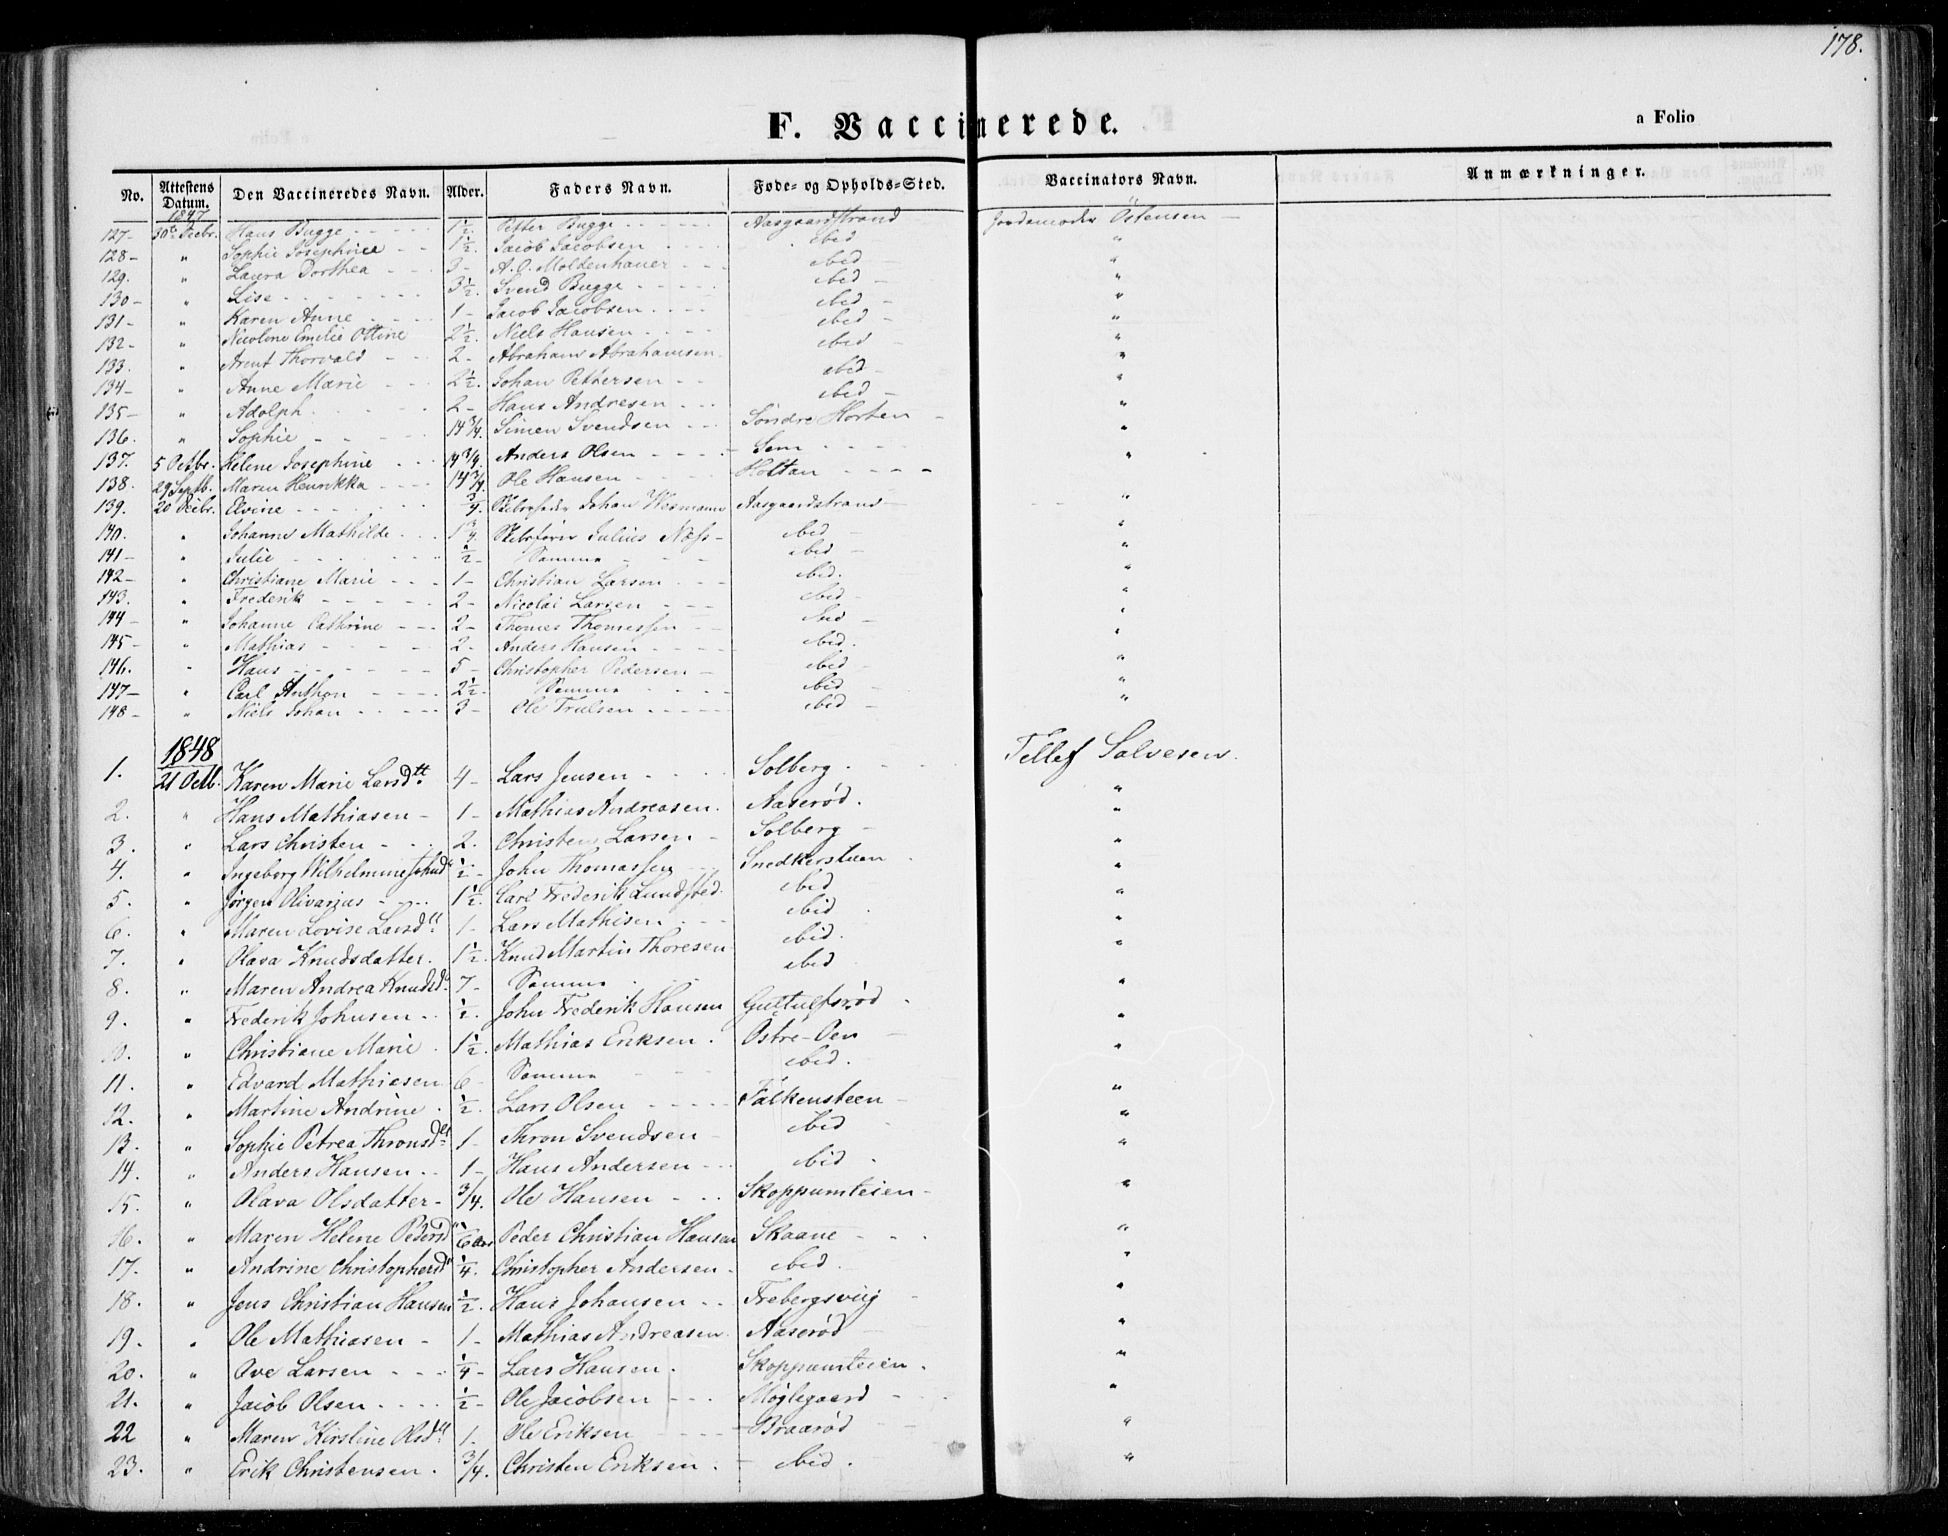 178.
F. Vaccinerede.
a Folio
No. Attestens Datum. Den Vaccineredes Navn. Alder. Faders Navn. Føde- og Opholds-Sted. Vaccinators Navn. Anmærkninger.
1847
127- 30te Decbr. Hans Bugge - 1½ Petter Bugge - Aasgaardstrand - Jordemoder Östensen -
128- " Sophie Josephine 1½. Jacob Jacobsen ibid - "
129. " Laura Dorthea - 3- A. C. Moldenhauer - ibid - "
130- " Lise - 3½. Svend Bugge - ibid - "
131- " Karen Anne 1- Jacob Jacobsen ibid - "
132- " Nicoline Emilie Ottine 2½. Niels Hansen ibid - "
133. " Arent Thorvald - 2- Abraham Abrahamsen ibid - "
134- " Anne Marie - 2½. Johan Pettersen - ibid - "
135- " Adolph 2- Hans Andresen ibid - "
136. " Sophie - 14 3/4. Simen Svendsen - Søndre Horten - "
137. 5 Octbr. Helene Josephine 14 3/4. Anders Olsen - Sem "
138. 29 Septb. Maren Henrikka 14 3/4. Ole Hansen - Holtan "
139. 20 Decbr. Elvine - 3/4. Johan Wermann Aasgaardstrand - "
140. " Johanne Mathilde 1 3/4. Julius Næss - ibid - "
141- " Julie - ½- Samme - ibid - "
142- " Christiane Marie 1- Christian Larsen ibid. "
143. " Frederik - 2- Nicolai Larsen - ibid - "
144- " Johanne Cathrine - 2- Thomes Thomessen - ibid - "
145- " Mathias - 2- Anders Hansen - ibid. "
146. " Hans - 5- Christopher Pedersen - ibid - "
147- " Carl Anthon - 2½- Samme - ibid - "
148- " Niels Johan - 3- Ole Trulsen - ibid - "
1848
1. 21 Octb. Karen Marie Larsdtt. 4- Lars Jensen Solberg. Tellef Salvesen.
2. " Hans Mathiasen - 1- Mathias Andreasen. Aaserød. "
3. " Lars Christen - 2. Christen Larsen - Solberg - "
4. " Ingeborg Wilhelmine Johnsd. ½- John Thomassen Snedkerstuen "
5. " Jørgen Olivarius - 1½. Carl Frederik Lundsted. ibid "
6. " Maren Lovise Larsdtt. 1- Lars Mathisen ibid "
7. " Olava Knudsdatter. 1½. Knud Martin Thoresen ibid. "
8. " Maren Andrea Knudsd. 7- Samme ibid "
9. " Frederik Johnsen ½. John Frederik Hansen Gultulfsrød "
10. " Christiane Marie 1½. Mathias Eriksen. Østre-Oen "
11. " Edvard Mathiesen 6- Samme ibid. "
12. " Martine Andrine ½. Lars Olsen - Falkensteen - "
13. " Sophie Petrea Thronsdtt. 1- Thron Svendsen - ibid "
14. " Anders Hansen 1- Hans Andersen ibid "
15. " Olava Olsdatter- 3/4. Ole Hansen - Skoppumteien - "
16. " Maren Helene Pedersd. 6 Peder Christian Hansen Skaane - "
17. " Andrine Christophersd. ¼. Christopher Andersen. ibid. "
18. " Jens Christian Hansen ½. Hans Johansen Frebergsviig - "
19. " Ole Mathiasen - 1- Mathias Andreasen. Aaserød - "
20. " Ove Larsen - ¼- Lars Hansen. Skoppumteien. "
21. " Jacob Olsen ½- Ole Jacobsen Møglegaard - "
22 " Maren Kirstine Olsdtt. 1. Ole Eriksen - Braarød - "
23. " Erik Christensen. 3/4. Christen Eriksen. - ibid. "